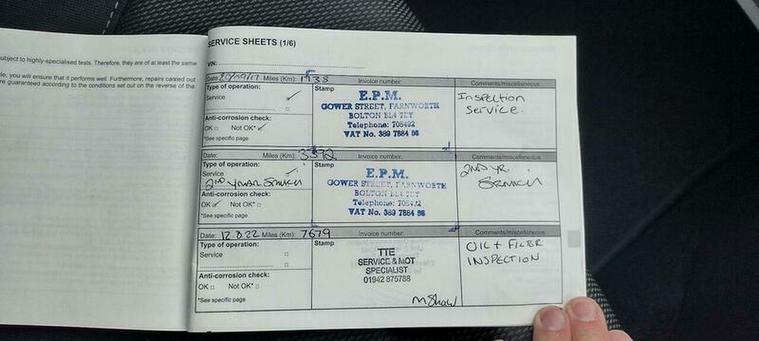 ubject to highly-specialised tests. Therefore, they are of at least the same
le, you will ensure that it performs well. Furthermore, repairs carried out
re guaranteed according to the conditions set out on the reverse of the
SERVICE SHEETS (1/6)
VIN:
Date: Miles (Km): 1938 Invoice number: Comments/miscellaneous
Type of operation:
Service
Anti-corrosion check:
OK Not OK*
*See specific page
Stamp
E.P.M.
GOWER STREET, FARNWORTH
BOLTON BL4 7EY
Telephone: 705492
VAT No. 389 7884 86
Inspection
Service.
Date: Miles (Km): 3392 Invoice number: Comments/miscellaneous
Type of operation:
Service
2ND YEAR SERVICE
Anti-corrosion check:
OK Not OK*
*See specific page
Stamp
E.P.M.
GOWER STREET, FARNWORTH
BOLTON
Telephone:
VAT No. 389 7884 86
2ND YR.
SERVICE
Date: 12.8.22 Miles (Km): 7679 Invoice number: Comments/miscellaneous
Type of operation:
Service
Anti-corrosion check:
OK Not OK*
*See specific page
Stamp
TTE
SERVICE & MOT
SPECIALIST
01942 875788
M Shaw
OIL + FILTER
INSPECTION